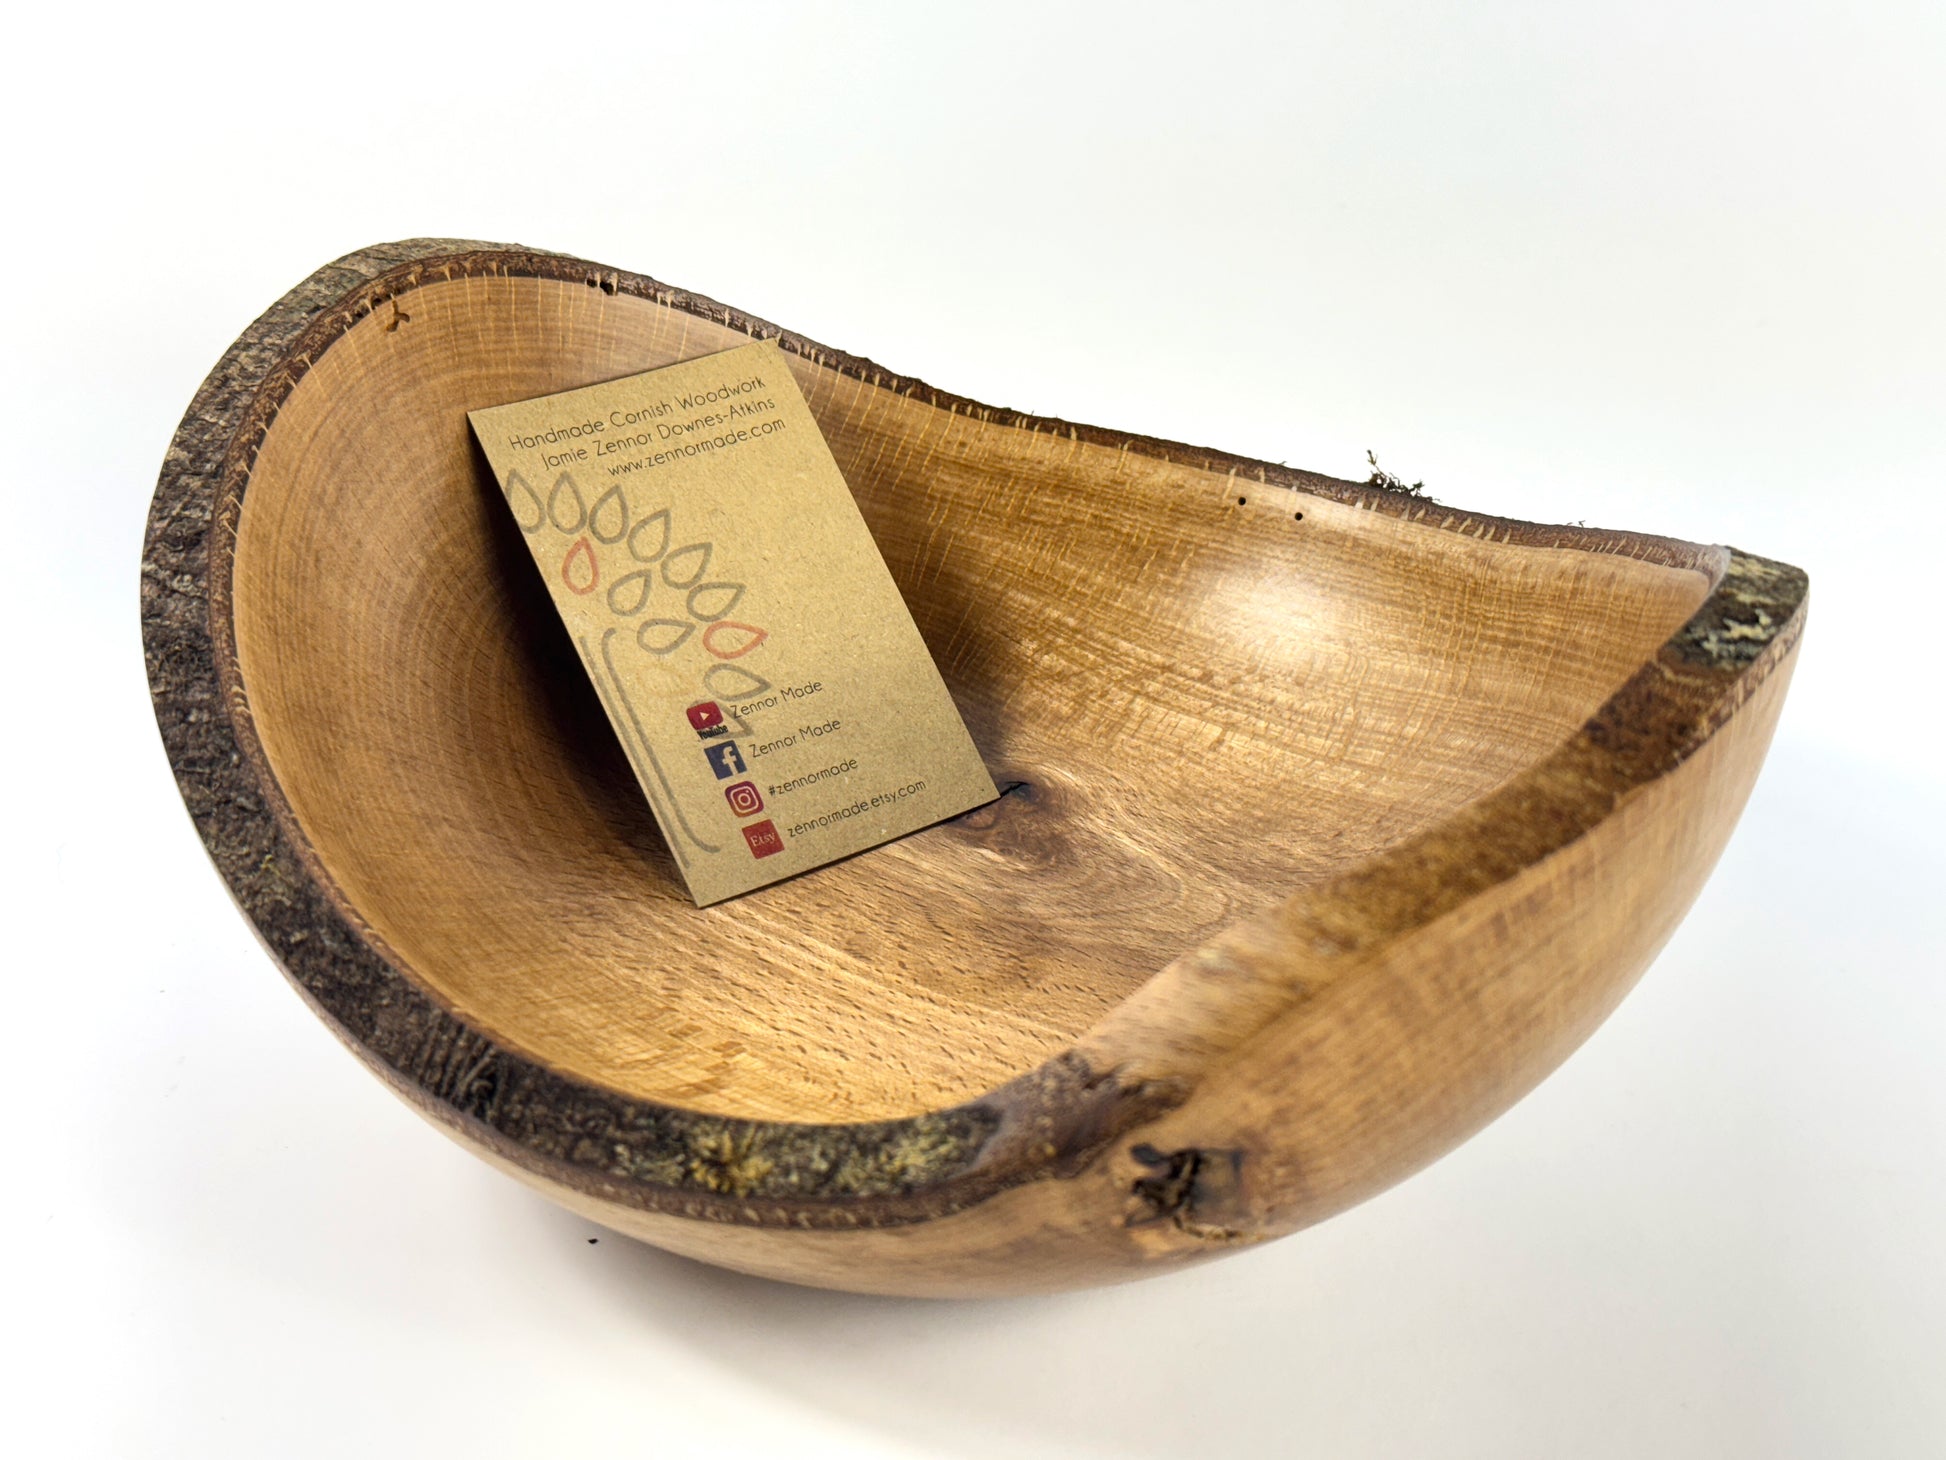 Handmade Cornish Woodwork
Jamie Zennor Downes-Atkins
www.zennormade.com
YouTube Zennor Made
Zennor Made
#zennormade
Etsy zennormade.etsy.com